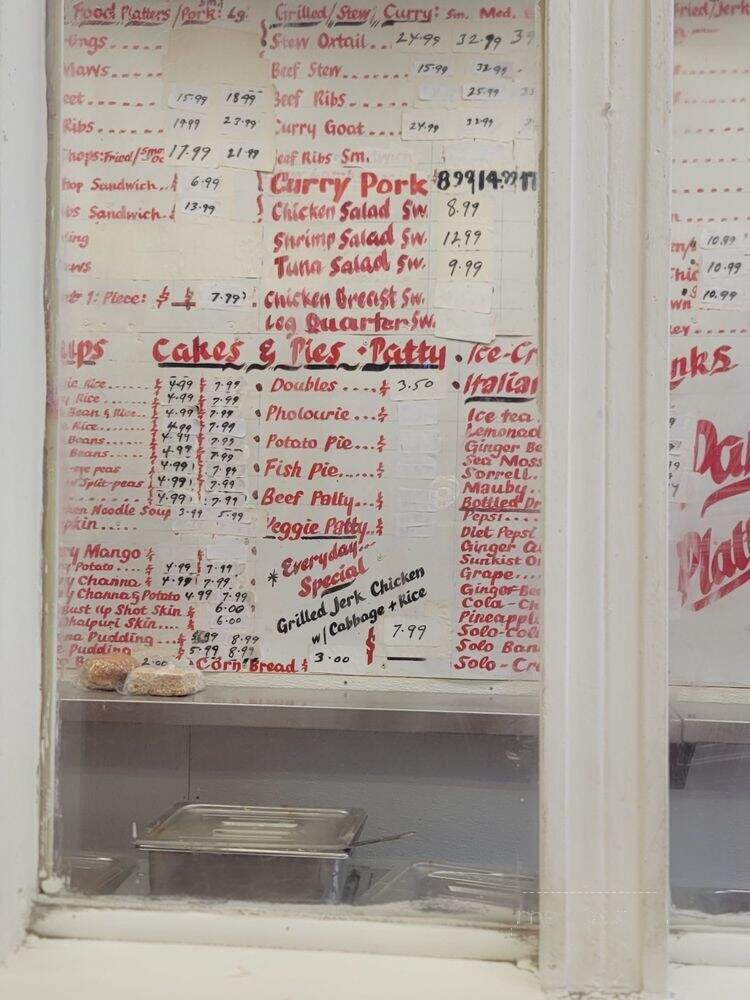 Food Platters/Pork: Sm. Lg.
ings
Maws
eet 15.99 18.99
Ribs 19.99 23.99
hops: Fried/Smo 17.99 21.99
hop Sandwich 6.99
bs Sandwich 13.99
ling
aws
1: Piece: $ $ 7.99
Grilled/Stew/Curry: Sm. Med.
Stew Oxtail... 24.99 32.99 39
Beef Stew 15.99
Beef Ribs 25.99
Curry Goat 24.99 32.99
Beef Ribs Sm.
Curry Pork 8.99 14.99 17
Chicken Salad Sw. 8.99
Shrimp Salad Sw. 12.99
Tuna Salad Sw. 9.99
Chicken Breast Sw.
Leg Quarter Sw.
ups
ie Rice $ 4.99 $ 7.99
y Rice 4.99 7.99
Bean & Rice 4.99 7.99
Rice 4.99 7.99
Beans 4.99 7.99
Beans 4.99 7.99
-eye peas 4.99 7.99
Split-peas 4.99 7.99
4.99 7.99
ken Noodle Soup 3.99 5.99
pkin
ry Mango $
Potato 4.99 7.99
y Channa 4.99 7.99
y Channa & Potato 4.99 7.99
Bust up Shot Skin $ 6.00
Dhalpuri Skin $ 6.00
na Pudding 5.99 8.99
e Pudding 5.99 8.99
2.00
Corn Bread $ 3.00
Cakes & Pies • Patty
• Doubles .... $ 3.50
• Pholourie ... $
• Potato Pie ... $
• Fish Pie...... $
• Beef Patty... $
Veggie Patty.. $
* Everyday
Special
Grilled Jerk Chicken
w/Cabbage + Rice
$ 7.99
• Ice-Cr
• Italian
Ice tea
Lemonad
Ginger Be
Sea Moss
Sorrell
Mauby
Bottled Dr
Pepsi
Diet Pepsi
Ginger a
Sunkist O
Grape
Ginger-Bee
Cola-Ch
Pineapple
Solo-Cola
Solo Ban
Solo-Cr
Fried/Jerk
10.99
Chic 10.99
wn 10.99
ey
nks
Da
Plat